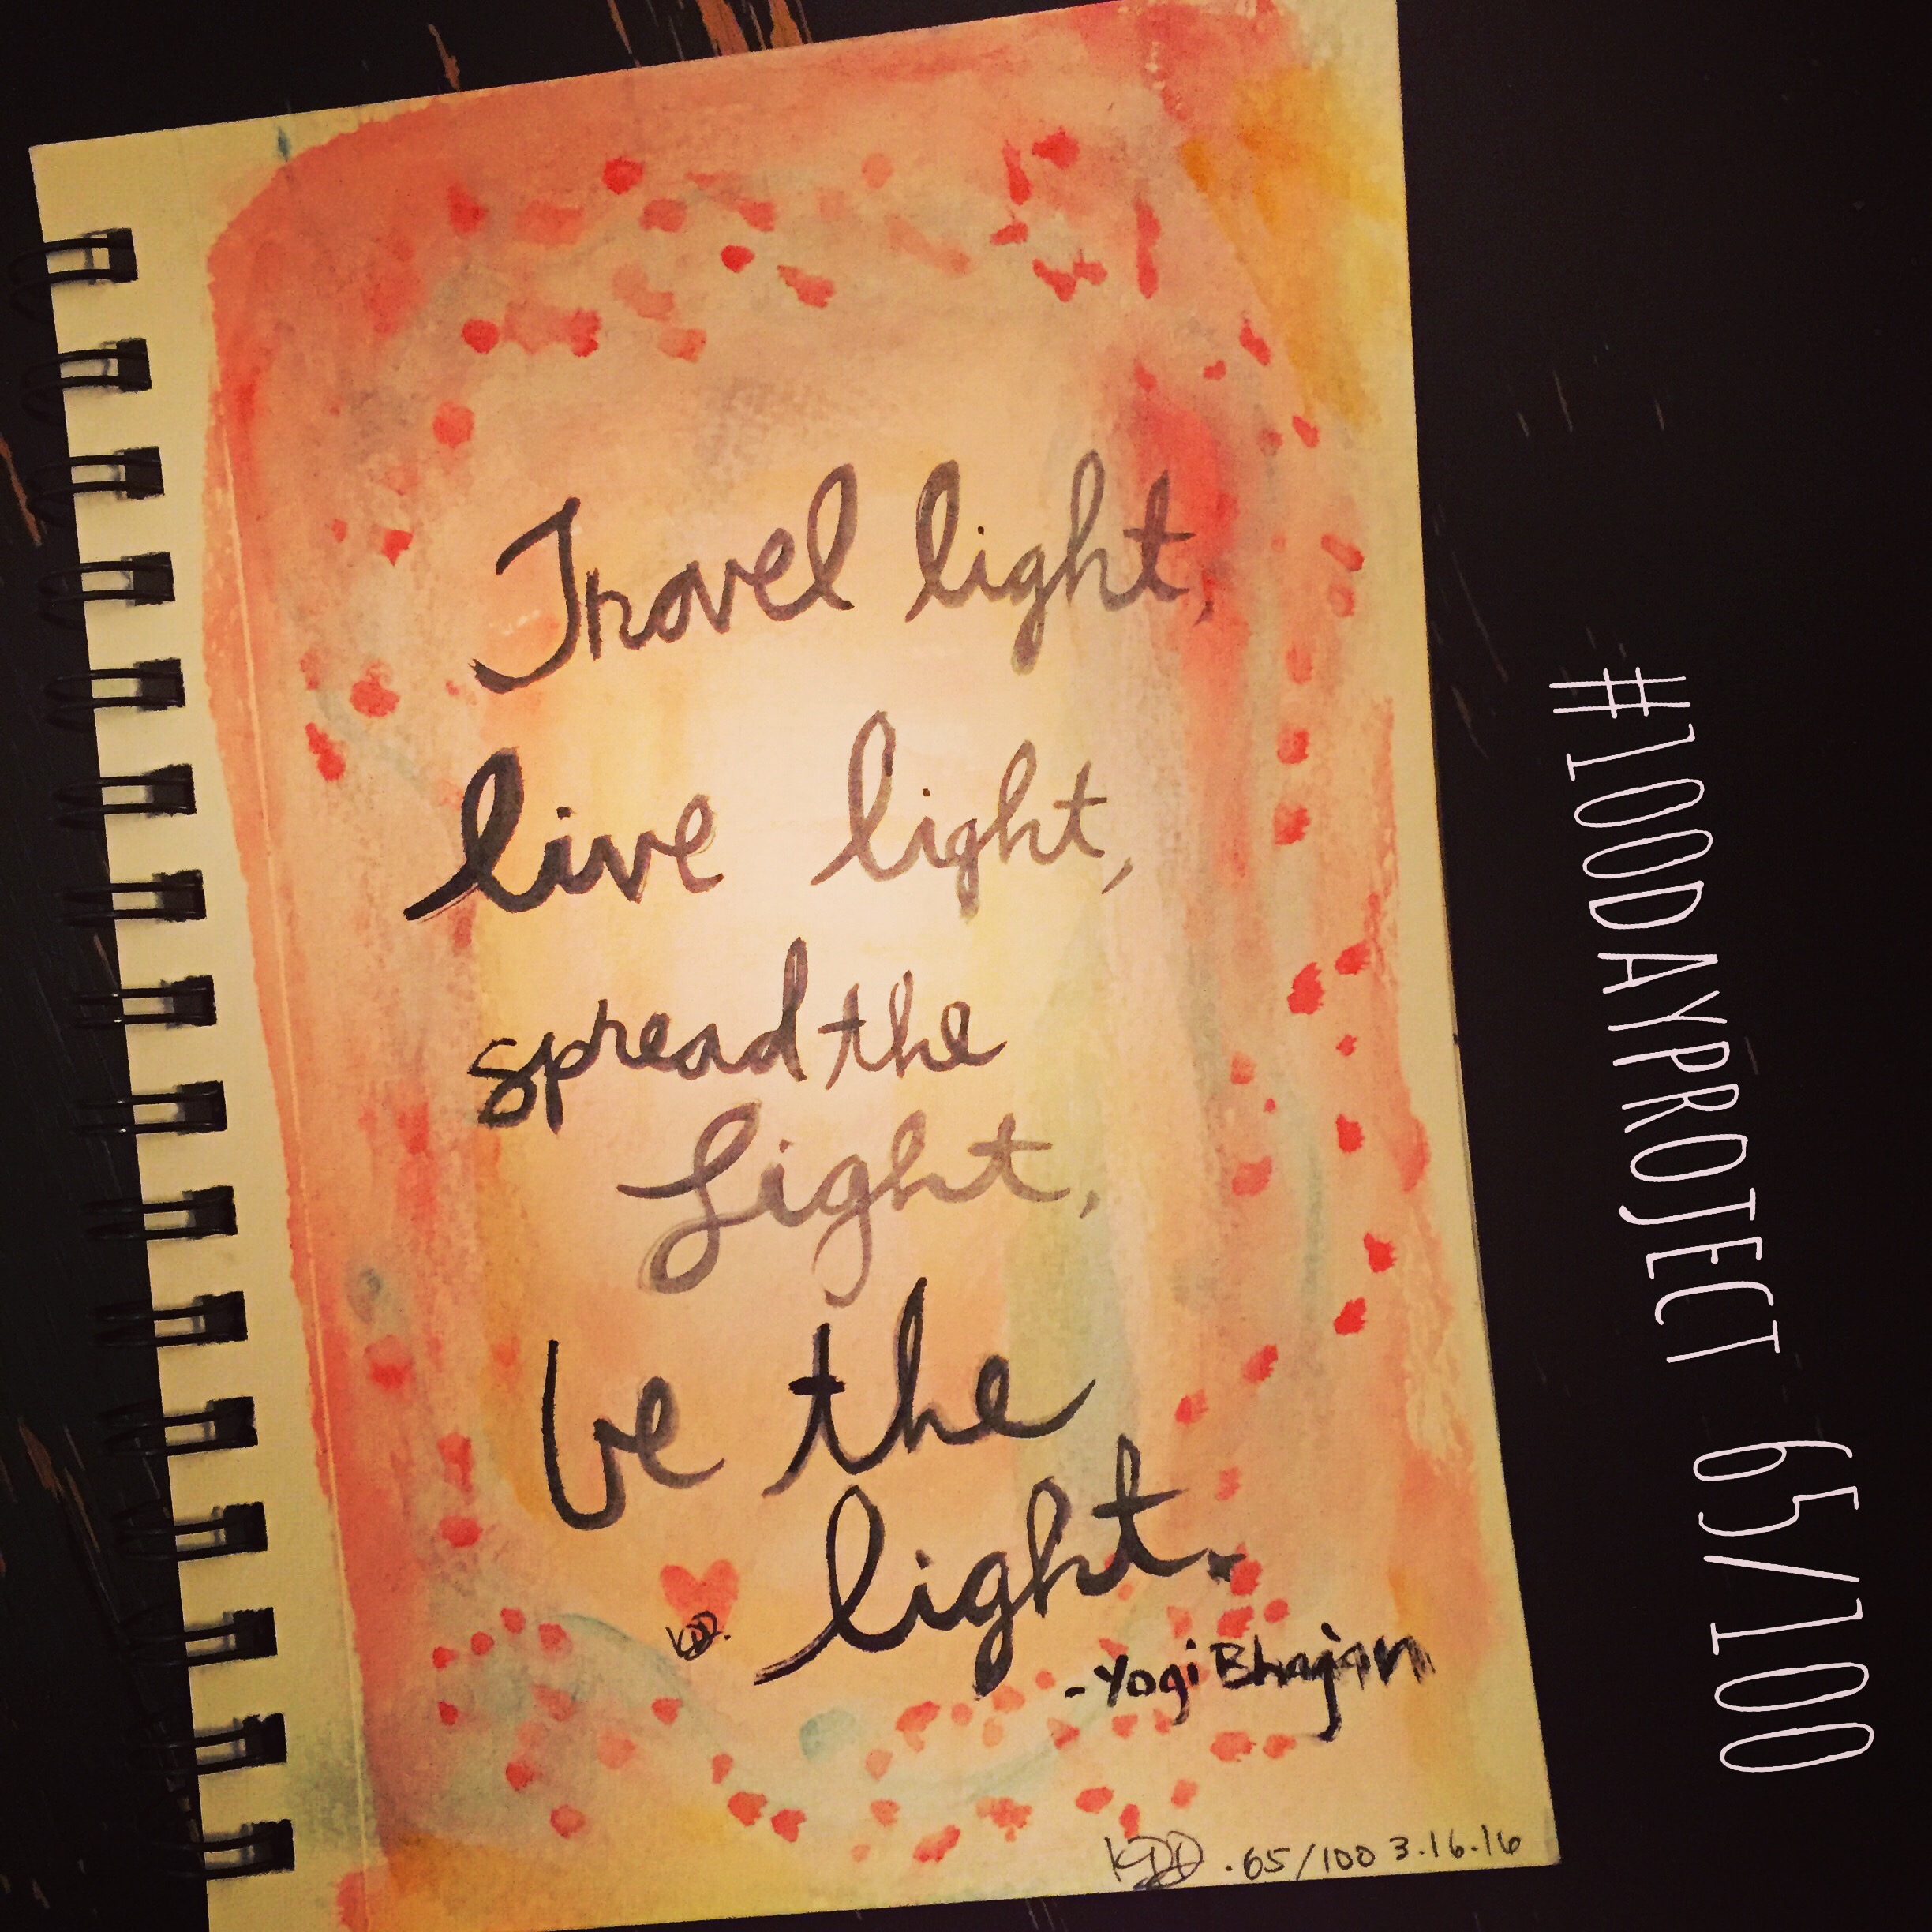 Travel light,
live light,
spread the
Light,
be the
light.
KDD.
-Yogi Bhajan
KDD .65/100 3.16.16
#100DAYPROJECT 65/100